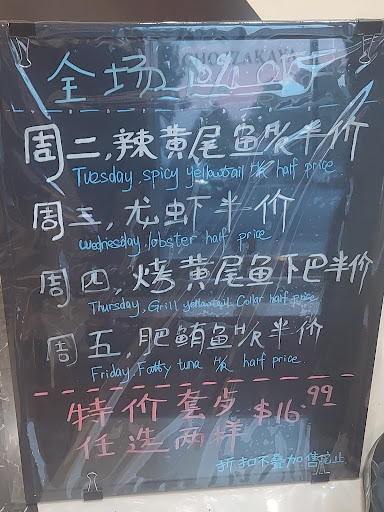 全场 10% off
周二,辣黄尾鱼/火半价
Tuesday, spicy yellowtail 1/2 half price.
周三,龙虾半价
Wednesday, lobster half price.
周四,烤黄尾鱼下巴半价
Thursday, Grill yellowtail Collar half price
周五,肥鲔鱼半价
Friday, Fatty tuna half price.
特价套歺 $16.99
任选两样
折扣不叠加售完止